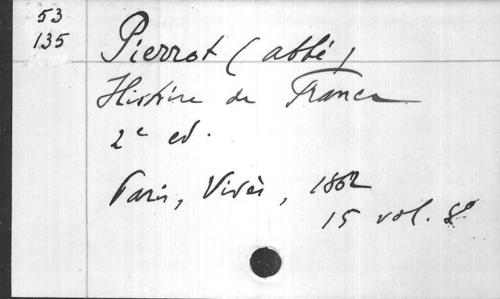 53
135
Pierrot (abbé)
Histoire de France
2e ed.
Paris, Vivès, 1862
15 vol. 8°